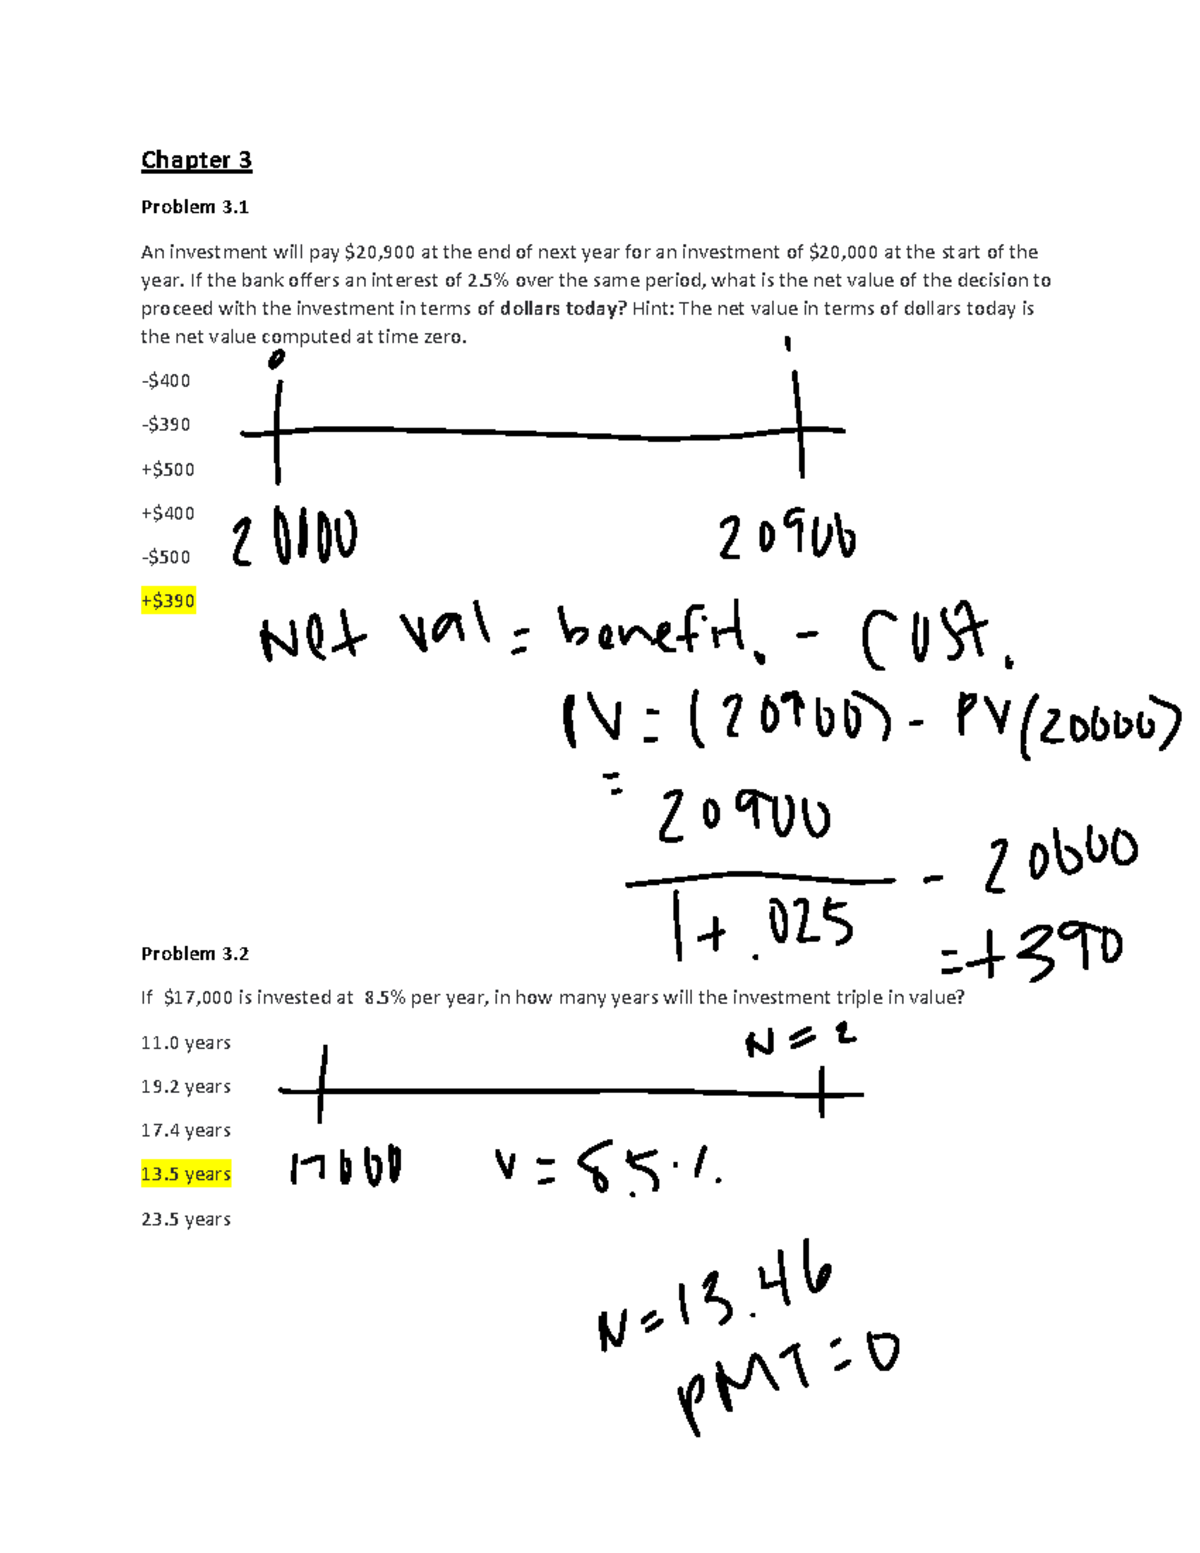 Chapter 3
Problem 3.1
An investment will pay $20,900 at the end of next year for an investment of $20,000 at the start of the
year. If the bank offers an interest of 2.5% over the same period, what is the net value of the decision to
proceed with the investment in terms of dollars today? Hint: The net value in terms of dollars today is
the net value computed at time zero.
0 1
-$400
-$390
+$500
+$400
20100 20900
-$500
+$390
Net val = benefit. - Cost.
PV = (20900) - PV(20000)
=
20900
- 20000
1 + .025
= +390
Problem 3.2
If $17,000 is invested at 8.5% per year, in how many years will the investment triple in value?
N = 2
11.0 years
19.2 years
17.4 years
13.5 years
17000 = 8.5%
23.5 years
N = 13.46
PMT = 0